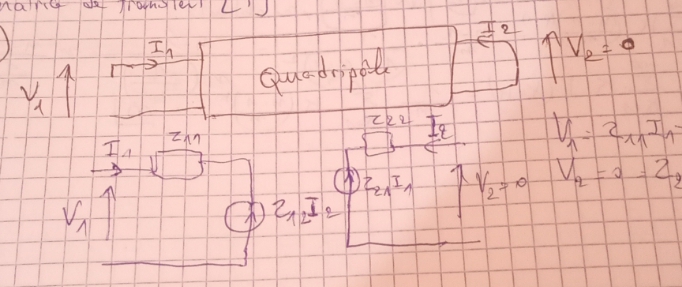 matrice de transfert [T]
I1
I2
V1
Quadripôle
V2 = 0
I1
Z11
Z22
I2
V1 = Z11 I1
V1
Z12 I2
Z21 I1
V2 = 0
V2 = 0 = Z2